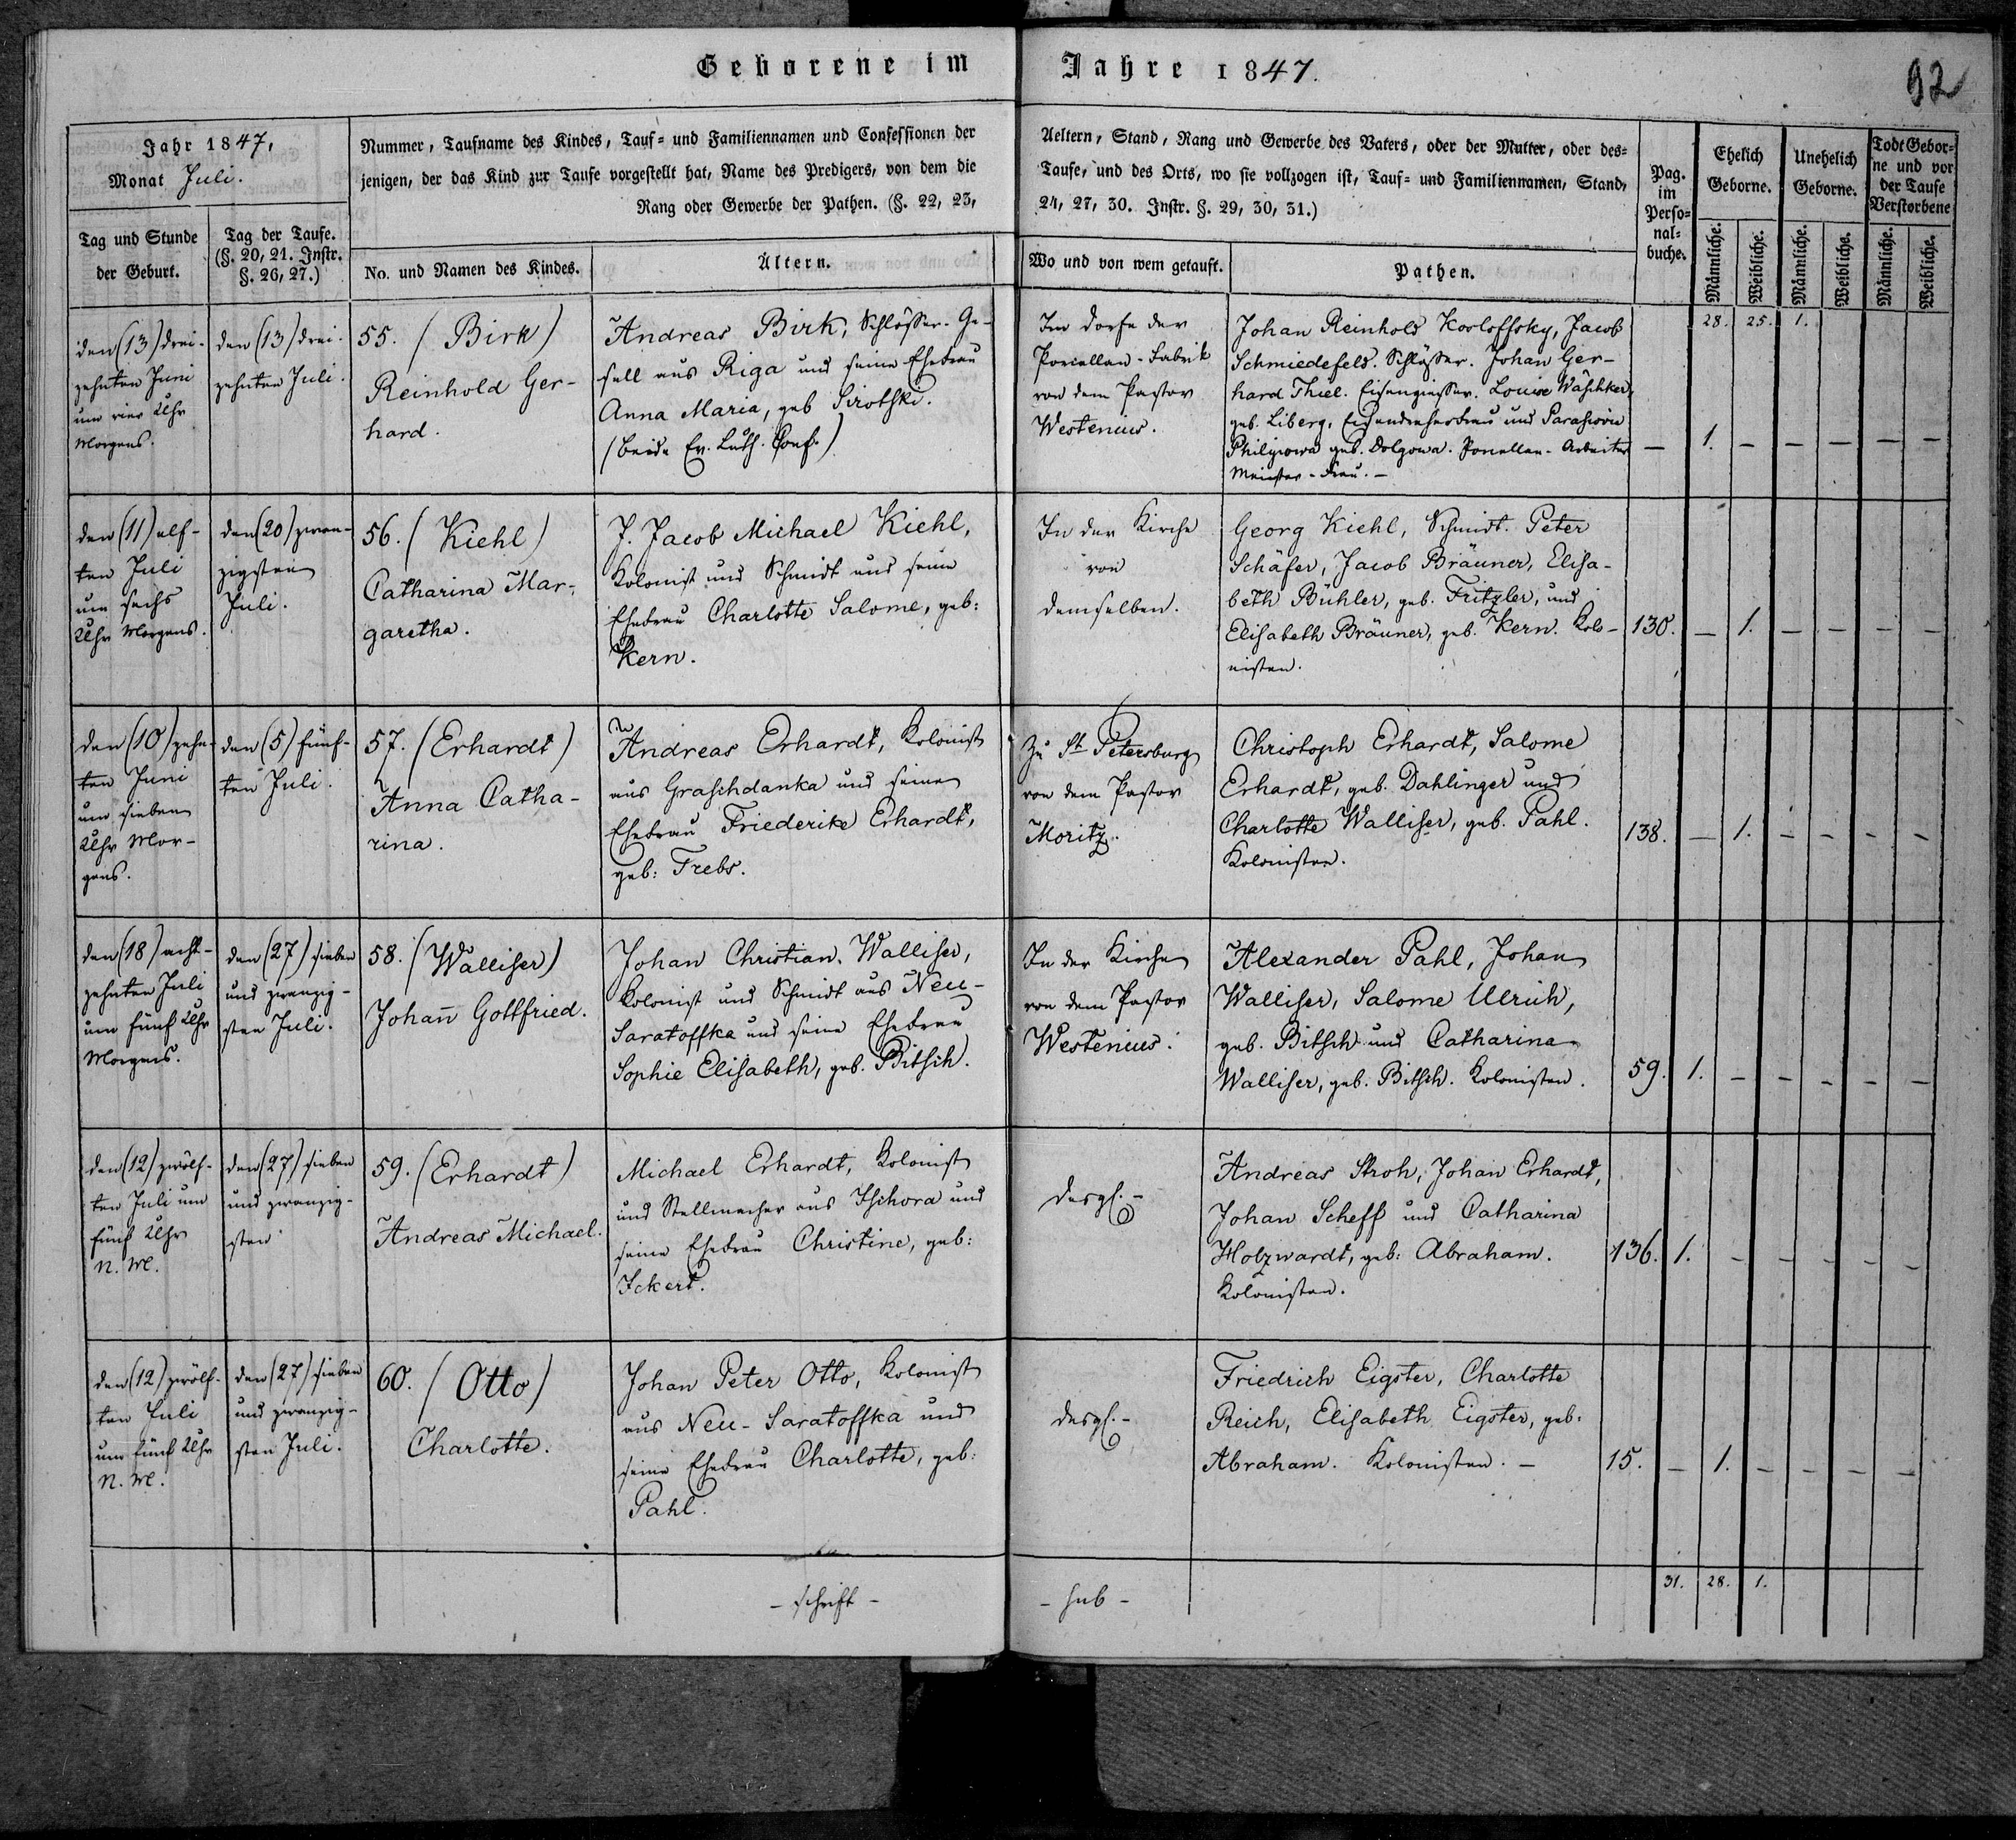 Geborene im Jahre 1847.
92
Jahr 1847,
Monat Juli.
Nummer, Taufname des Kindes, Tauf- und Familiennamen und Confessionen der
jenigen, der das Kind zur Taufe vorgestellt hat, Name des Predigers, von dem die
Rang oder Gewerbe der Pathen. (§. 22, 23,
Aeltern, Stand, Rang und Gewerbe des Vaters, oder der Mutter, oder des-
Taufe, und des Orts, wo sie vollzogen ist, Tauf- und Familiennamen, Stand,
24, 27, 30. Instr. §. 29, 30, 31.)
Pag.
im
Perso-
nal-
buche.
Ehelich
Geborne.
Unehelich
Geborne.
Todt Gebor-
ne und vor
der Taufe
Verstorbene
Tag und Stunde
der Geburt.
Tag der Taufe.
(§. 20, 21. Instr.
§. 26, 27.)
No. und Namen des Kindes.
Ältern.
Wo und von wem getauft.
Pathen.
Männliche.
Weibliche.
Männliche.
Weibliche.
Männliche.
Weibliche.
28. 25. 1.
den (13) drei-
zehnten Juni
um vier Uhr
Morgens.
den (13) drei-
zehnten Juli.
55. (Birk)
Reinhold Ger-
hard.
Andreas Birk, Schlosser-Ge-
sell aus Riga und seine Ehefrau
Anna Maria, geb Sirotski.
(beide Ev. Luth. Conf.)
Im Dorfe der
Porcellan-Fabrik
von dem Pastor
Westenius.
Johan Reinhold Korloffsky, Jacob
Schmiedefeld. Schlosser. Johan Ger-
hard Thiel. Eisengiesser. Louise Wäschker,
geb. Liberg, Eisendreherfrau und
geb. Dolgowa. Porcellan-Arbeiter
Meister-Frau. –
– 1. – – – – –
den (11) elf-
ten Juli
um sechs
Uhr Morgens.
den (20) zwan-
zigsten
Juli.
56. (Kiehl)
Catharina Mar-
garetha.
P. Jacob Michael Kiehl,
Kolonist und Schmidt und seine
Ehefrau Charlotte Salome, geb:
Kern.
In der Kirche
von
demselben.
Georg Kiehl, Schmidt. Peter
Schäfer, Jacob Bräuner, Elisa-
beth Bühler, geb. Fritzler, und
Elisabeth Bräuner, geb. Kern. Kolo-
nisten.
130. – 1. – – – –
den (10) zehn-
ten Juni
um sieben
Uhr Mor-
gens.
den (5) fünf-
ten Juli.
57. (Erhardt)
Anna Catha-
rina.
Andreas Erhardt, Kolonist
aus Graschdanka und seine
Ehefrau Friederike Erhardt,
geb: Trebs.
Zu St. Petersburg
von dem Pastor
Moritz.
Christoph Erhardt, Salome
Erhardt, geb. Dahlinger und
Charlotte Walliser, geb. Pahl.
Kolonisten.
138. – 1. – – – –
den (18) acht-
zehnten Juli
um fünf Uhr
Morgens.
den (27) sieben
und zwanzig-
sten Juli.
58. (Walliser)
Johañ Gottfried.
Johan Christian Walliser,
Kolonist und Schmidt aus Neu-
Saratoffka und seine Ehefrau
Sophie Elisabeth, geb. Bitsch.
In der Kirche
von dem Pastor
Westenius.
Alexander Pahl, Johan
Walliser, Salome Ulrich,
geb. Bitsch und Catharina
Walliser, geb. Bitsch. Kolonisten.
59. 1. – – – – –
den (12) zwölf-
ten Juli um
fünf Uhr
N. M.
den (27) sieben
und zwanzig-
sten
59. (Erhardt)
Andreas Michael.
Michael Erhardt, Kolonist
und Stellmacher aus Ischora und
seine Ehefrau Christine, geb:
Ickert.
desgl. –
Andreas Stroh, Johan Erhardt,
Johan Scheff und Catharina
Holzwardt, geb: Abraham.
Kolonisten.
136. 1. – – – – –
den (12) zwölf-
ten Juli
um fünf Uhr
N. M.
den (27) sieben
und zwanzig-
sten Juli.
60. (Otto)
Charlotte.
Johan Peter Otto, Kolonist
aus Neu-Saratoffka und
seine Ehefrau Charlotte, geb:
Pahl.
desgl. –
Friedrich Eigster, Charlotte
Reich, Elisabeth Eigster, geb.
Abraham. Kolonisten. –
15. – 1. – – – –
– schrift –
31. 28. 1.